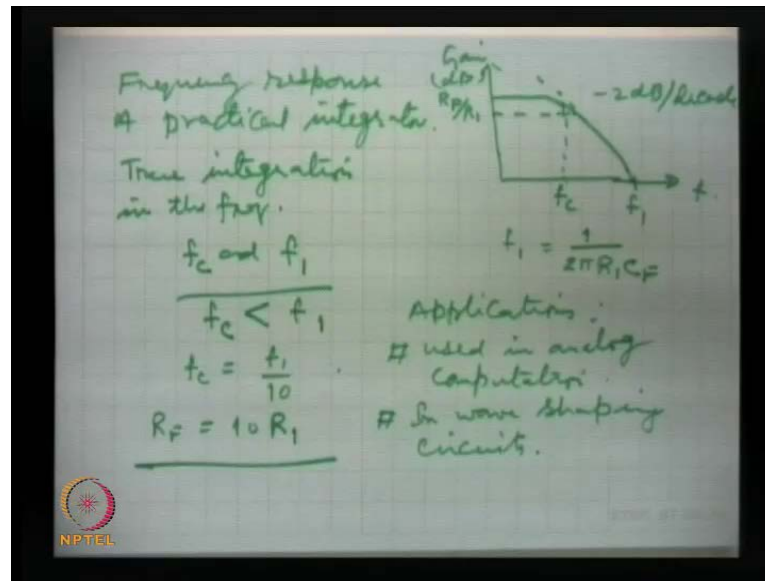 Frequency response
A practical integrator.
True integration
in the freq.
fc and f1
fc < f1
fc = f1/10
RF = 10 R1
Gain
(dB)
RF/R1
-2dB/decade
fc
f1
f
f1 = 1/2πR1CF
Applications:
# used in analog
computation.
# In wave shaping
circuits.
NPTEL